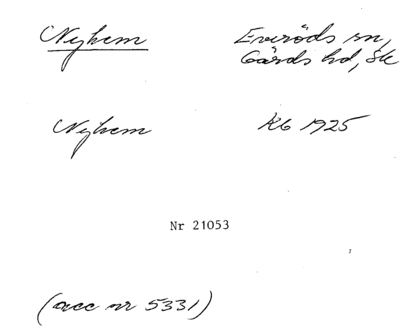 Nyhem Everöds sn,
Gärds hd, Sk
Nyhem K6 1925
Nr 21053
(acc nr 5331)